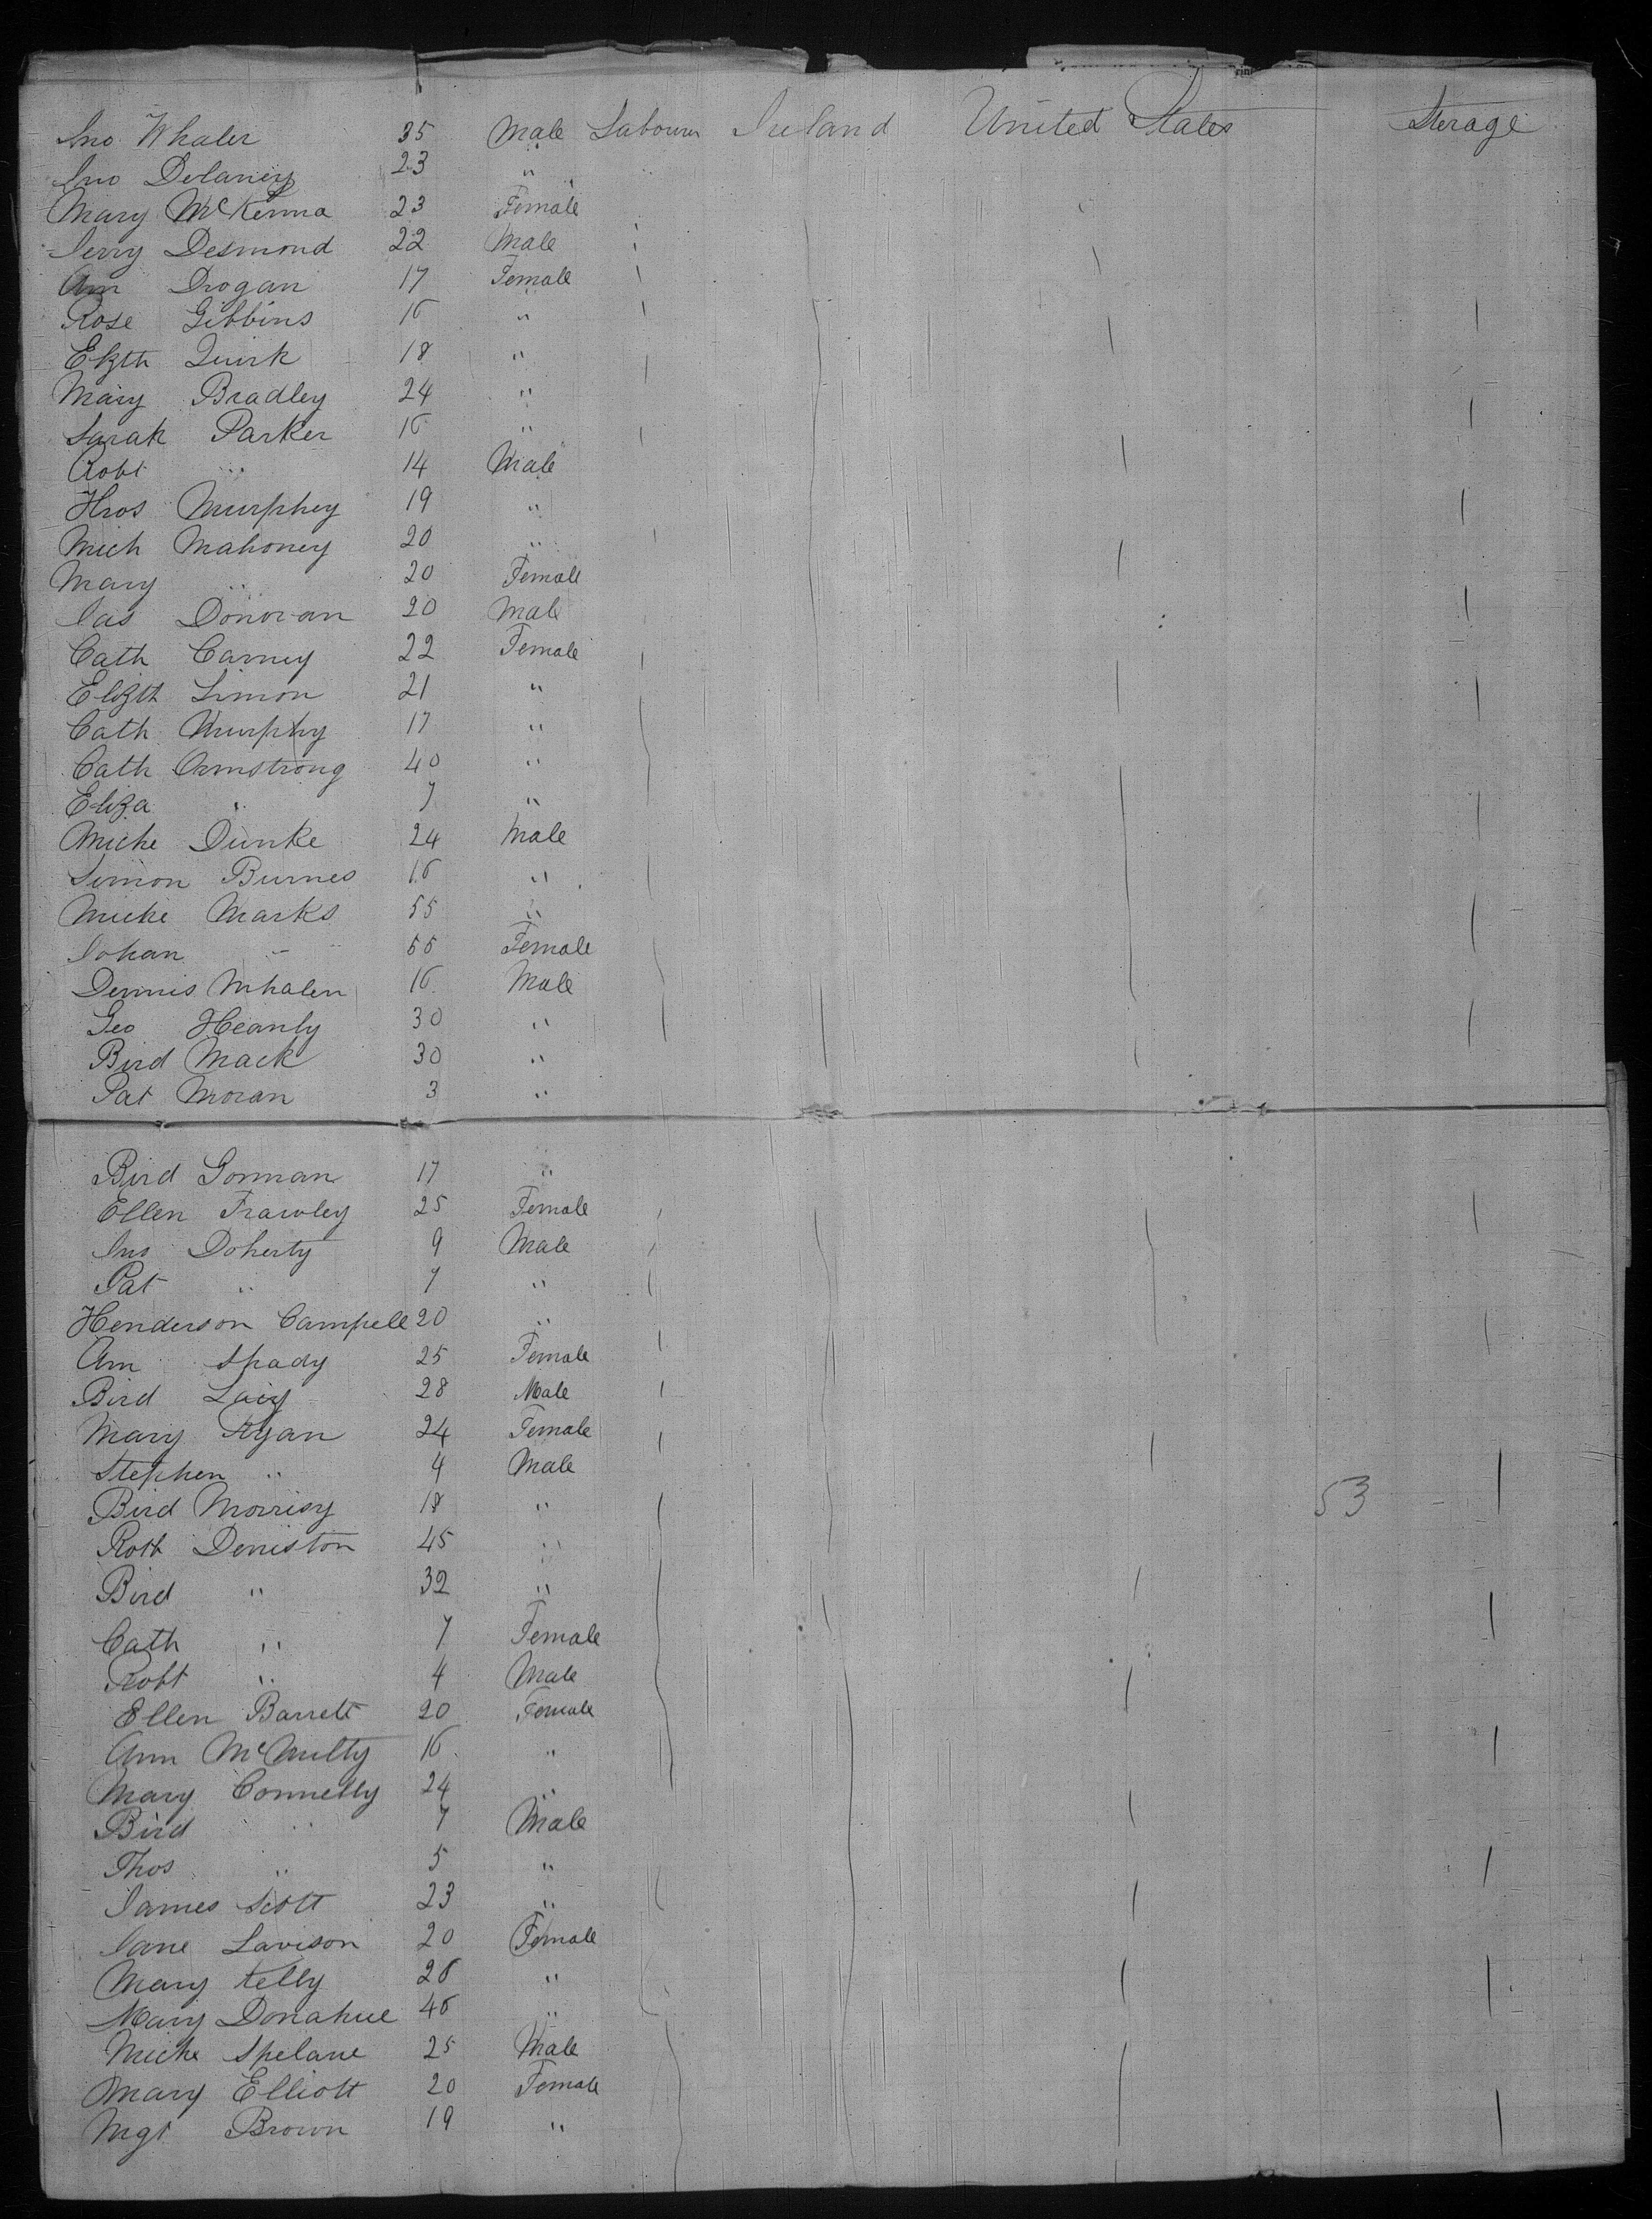 Jno Whaler 35 Male Labourer Ireland United States Sterage
Jno Delaney 23 "
Mary McKenna 23 Female
Jerry Desmond 22 Male
Ann Drogan 17 Female
Rose Gibbins 16 "
Elzth Quirk 18 "
Mary Bradley 24 "
Sarah Parker 16 "
Robt " 14 Male
Thos Murphey 19 "
Mich Mahoney 20 "
Mary " 20 Female
Jas Donovan 20 Male
Cath Carney 22 Female
Elizth Simon 21 "
Cath Murphy 17 "
Cath Armstrong 40 "
Eliza " 7 "
Miche Dunke 24 Male
Simon Burnes 16 "
Miche Marks 55 "
Johan " 55 Female
Dennis Whalen 16 Male
Geo Heanly 30 "
Bird Mack 30 "
Pat Moran 3 "
Bird Gorman 17 "
Ellen Frawley 25 Female
Jno Doherty 9 Male
Pat " 7 "
Henderson Campell 20 "
Ann Shady 25 Female
Bird Lacy 28 Male
Mary Ryan 24 Female
Stephen " 4 Male
Bird Morrisy 18 " 53
Robt Deniston 45 "
Bird " 32 "
Cath " 7 Female
Robt " 4 Male
Ellen Barrett 20 Female
Ann McNulty 16 "
Mary Connelly 24 "
Bird " 7 Male
Thos " 5 "
James Scott 23 "
Jane Lavison 20 Female
Mary Kelly 26 "
Mary Donahue 46 "
Miche Spelane 25 Male
Mary Elliott 20 Female
Mgt Brown 19 "